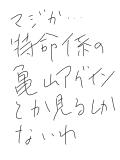 マジか…
特命係の
亀山アゲイン
とか見るしか
ないわ